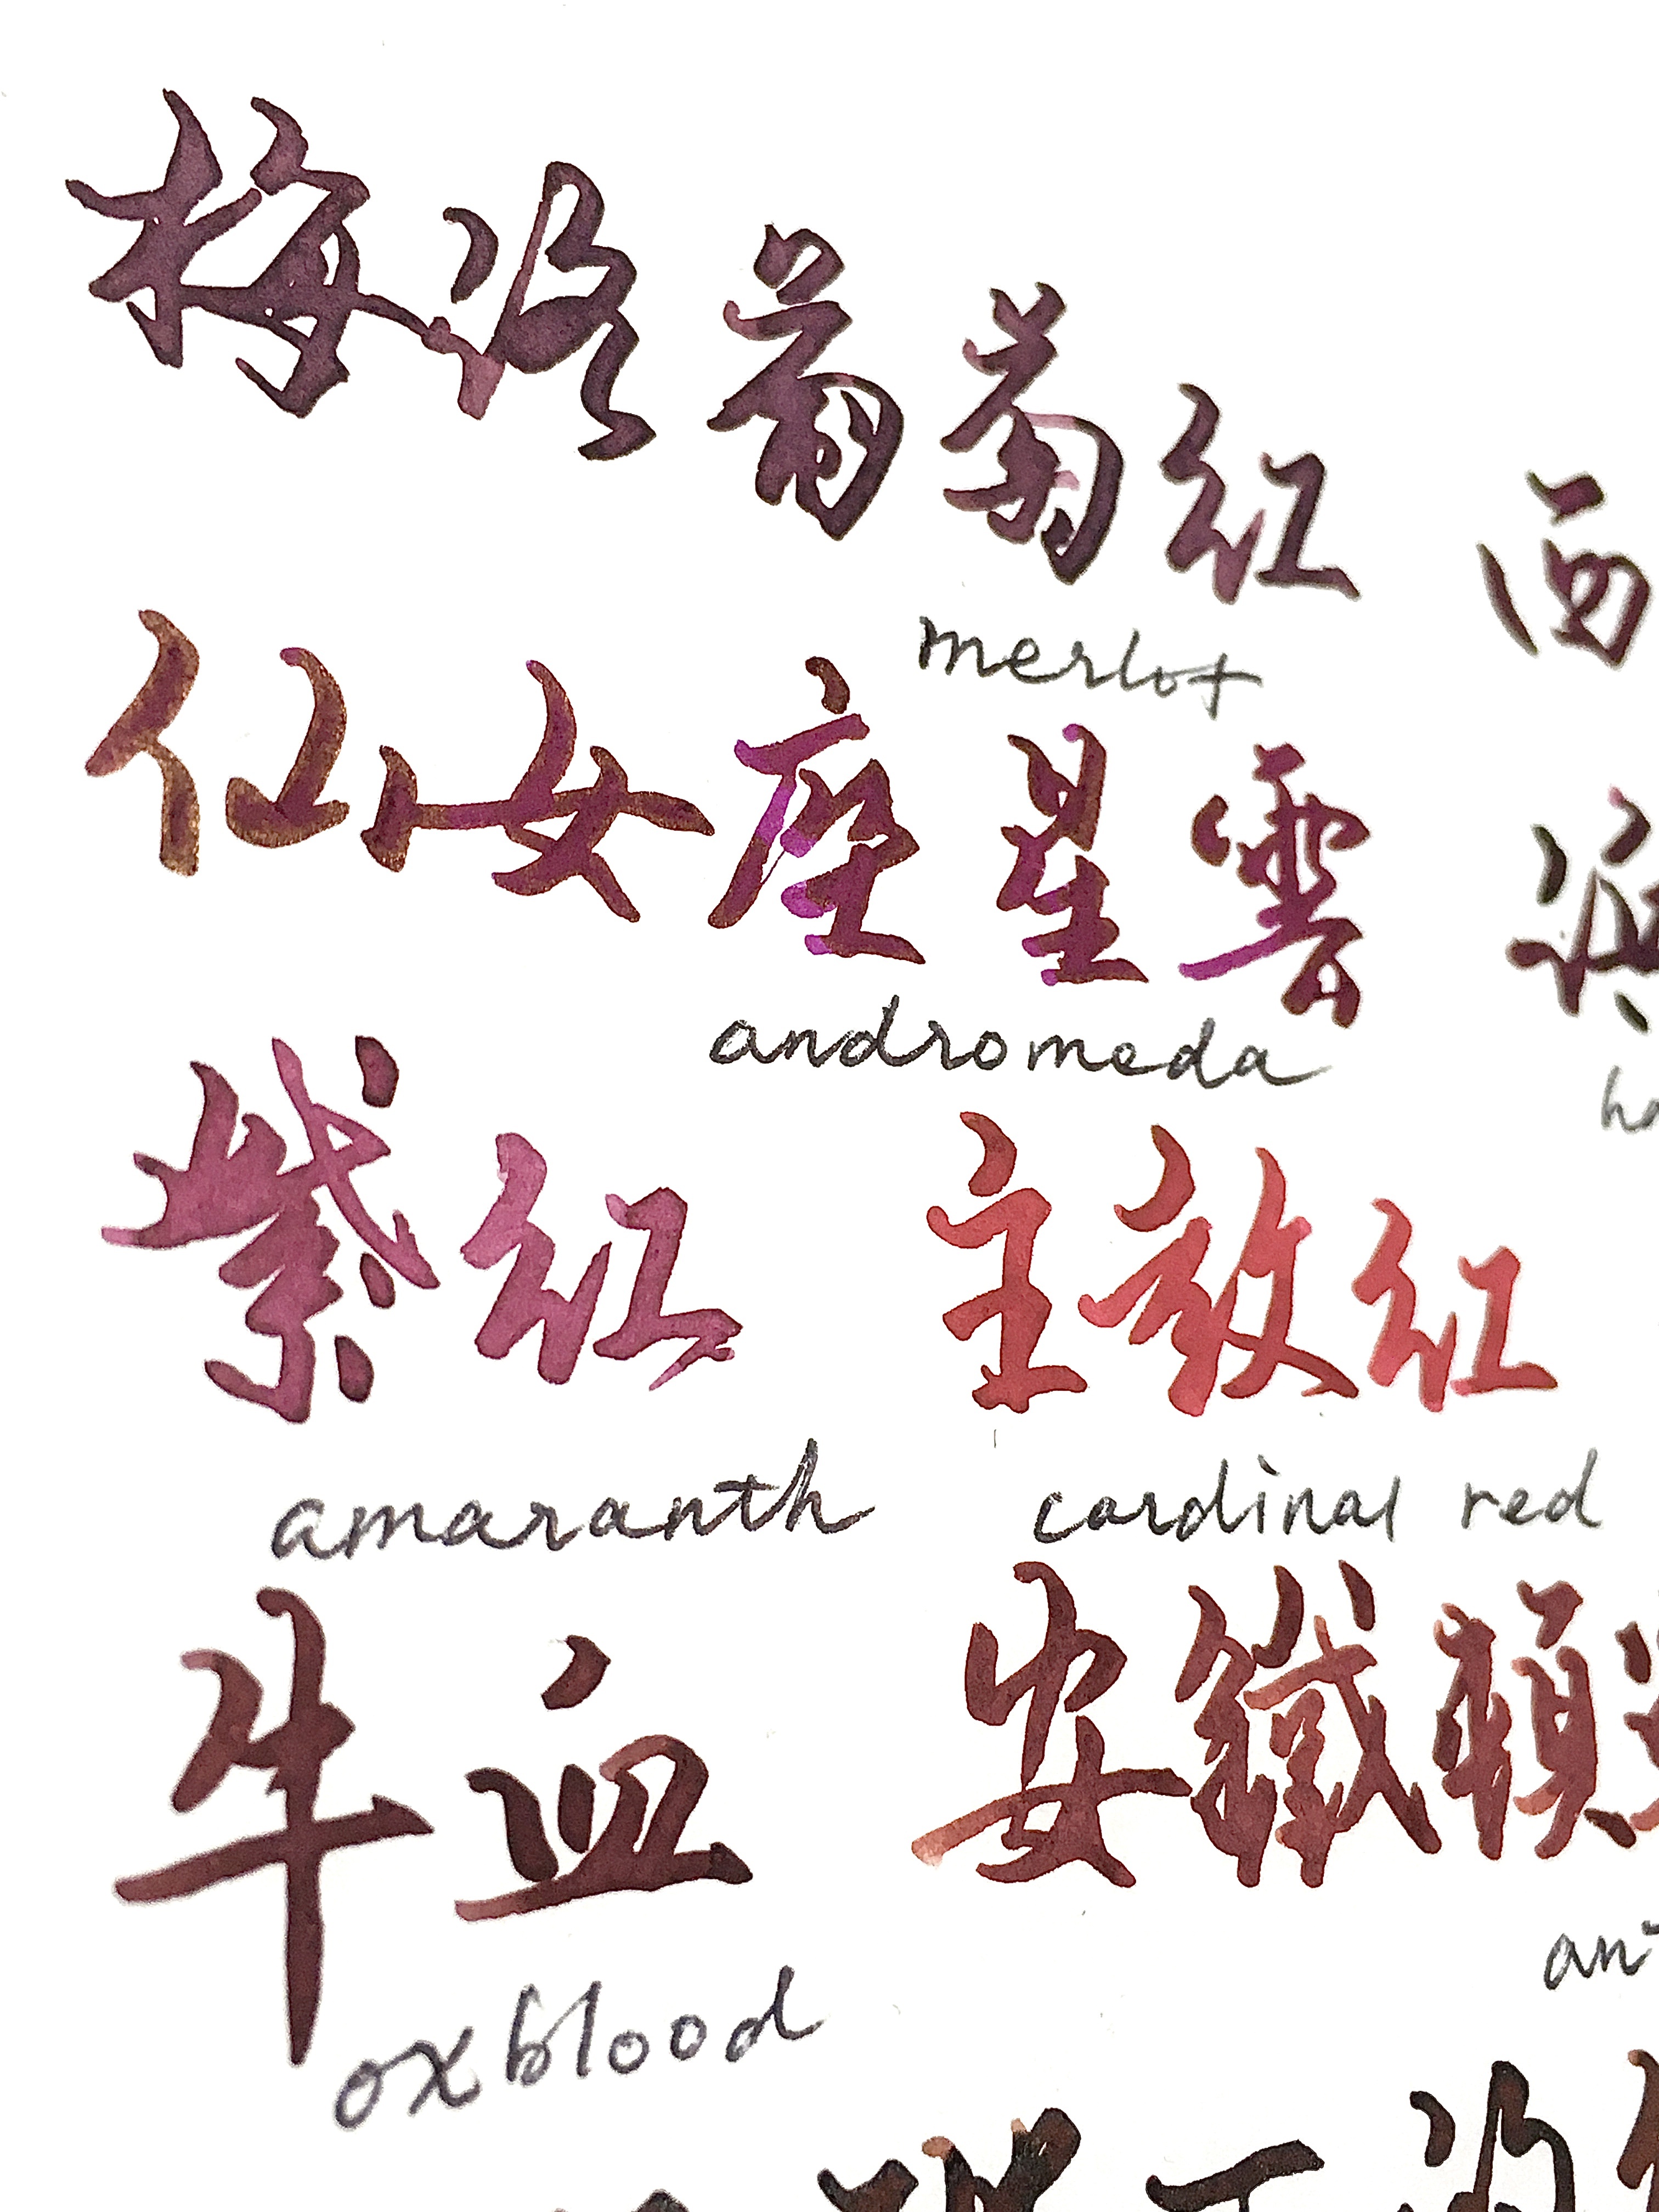 梅洛葡萄紅 西
merlot
仙女座星雲
andromeda
紫紅 主教紅
amaranth cardinal red
牛血 安鐵頓
oxblood